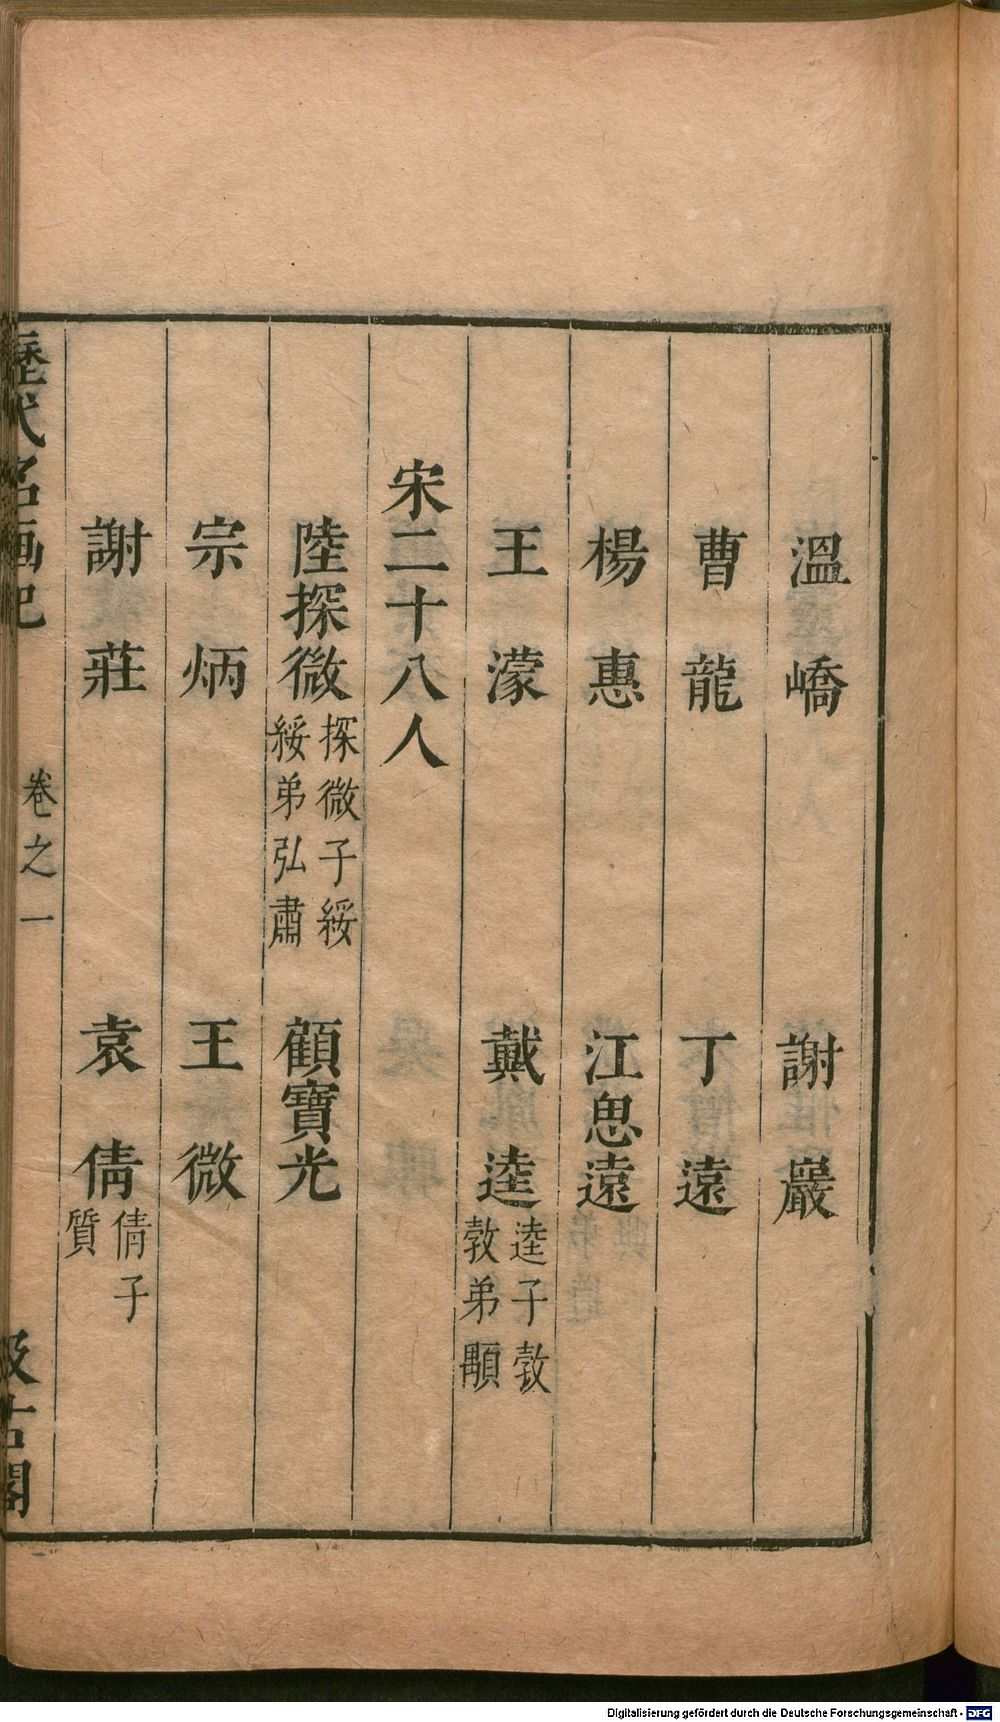 溫嶠 謝巖
曹龍 丁遠
楊惠 江思遠
王濛 戴逵 逵子敩 敩弟顒
宋二十八人
陸探微 探微子綏 綏弟弘肅 顧寶光
宗炳 王微
謝莊 袁倩 倩子質
歷代名画記 卷之一 汲古閣
Digitalisierung gefördert durch die Deutsche Forschungsgemeinschaft - DFG